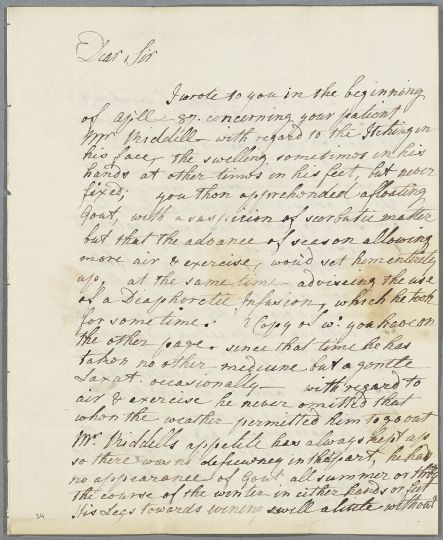 Dear Sir
I wrote to you in the beginning
of 87. concerning your patient
Mr Riddill with regard to the Itching in
his face, the swelling sometimes in his
hands at other times in his feet, but never
fixed; you then apprehended a floating
Gout, with a suspicion of scorbutic matter
but that the advance of season allowing
more air & exercise, wou'd set him entirely
up, at the same time adviseing the use
of a Diaphoretic Infusion, which he took
for some time. Copy of wc. you have on
the other page. since that time he has
taken no other medicine but a gentle
Laxat. occasionally — with regard to
air & exercise he never omitted that
when the weather permitted him to go out
Mr. Riddills appetite has always kept up
so there was no deficiency in that part, he had
no appearance of Gout all summer or
the course of the winter in either hands or feet
His Legs towards evening swell a little without
24